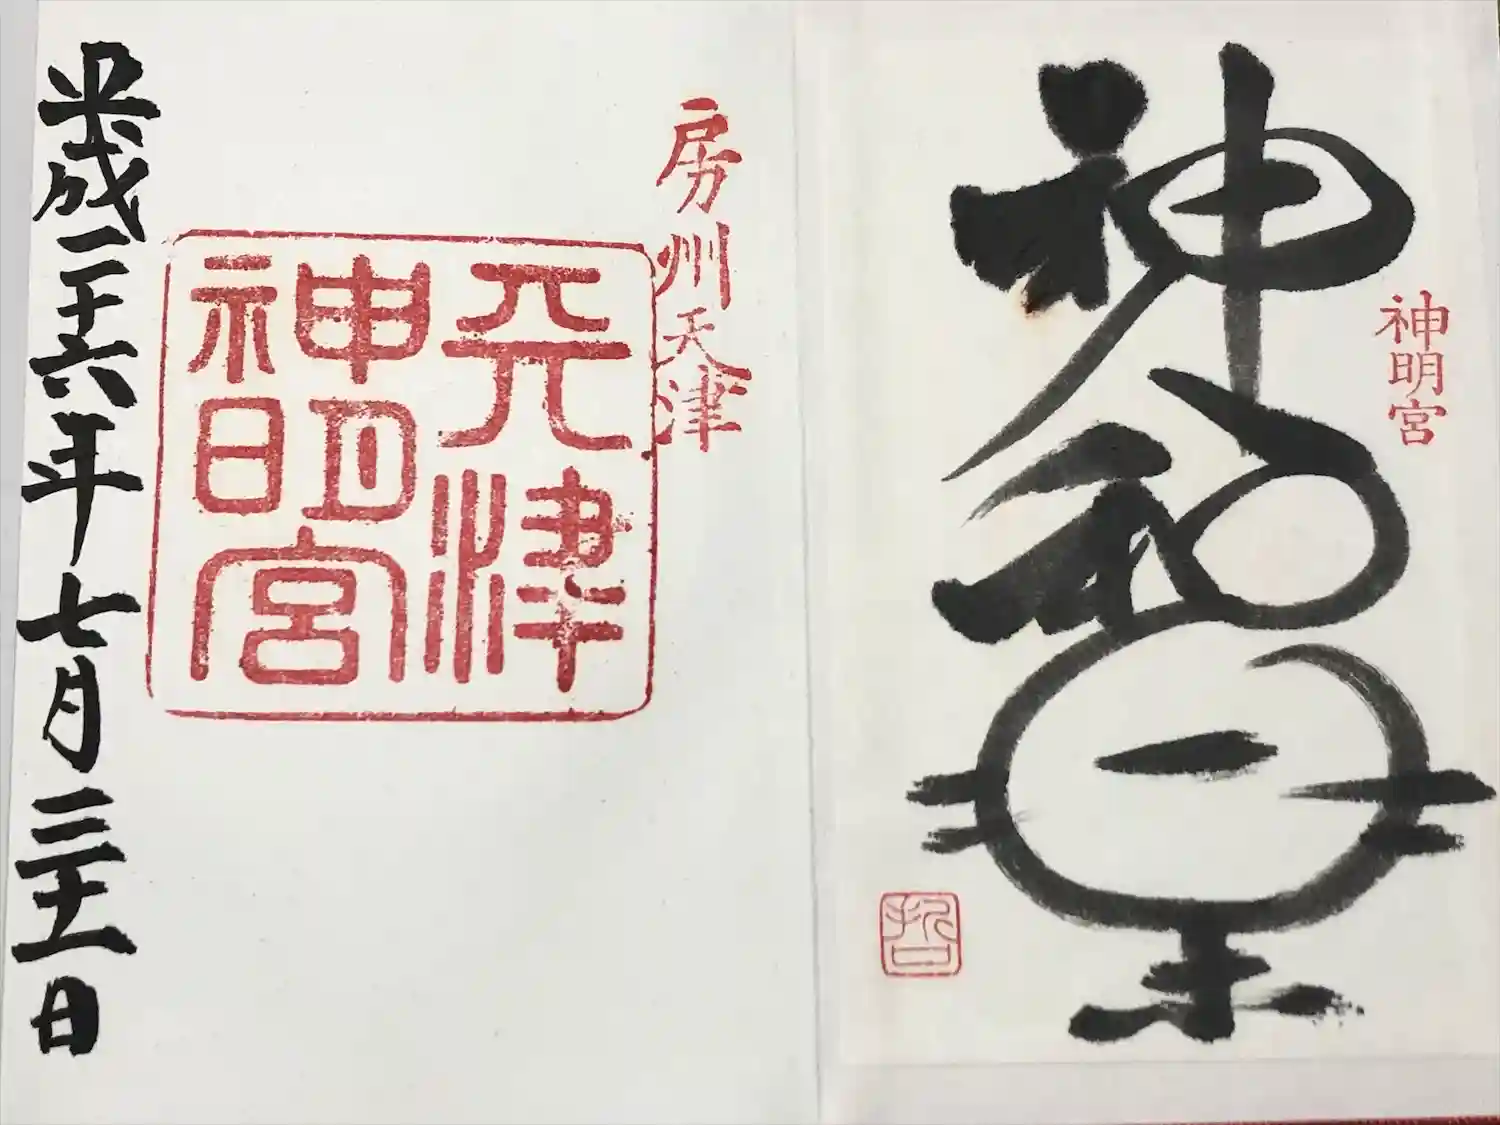 神明宮
神和
哲
房州天津
天津
神明宮
平成二十六年七月三十一日